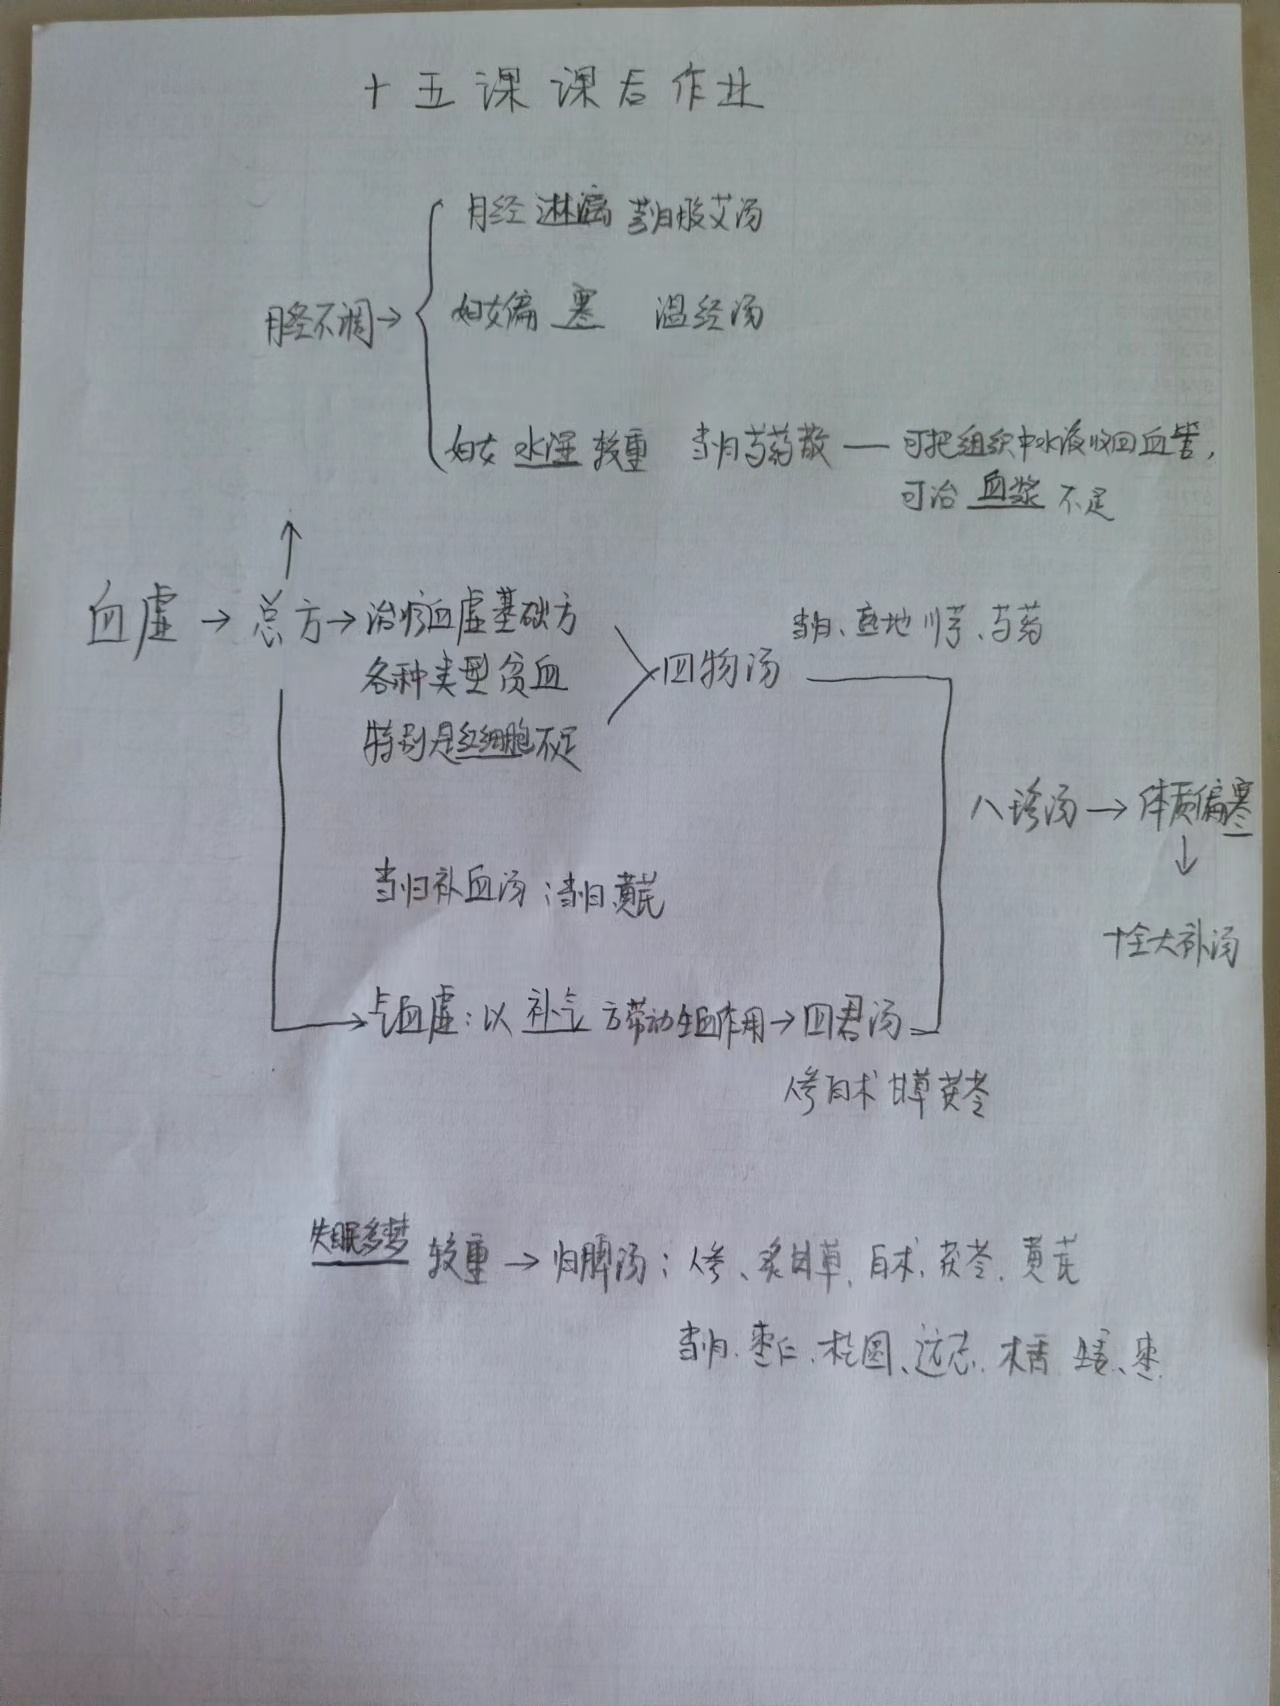 十五课课后作业
月经淋漓 芎归胶艾汤
月经不调→ 妇女偏寒 温经汤
妇女水湿较重 当归芍药散—可把组织中水液收回血管,
可治血浆不足
血虚→总方→治疗血虚基础方
当归、熟地 川芎、芍药
各种类型贫血
四物汤
特别是红细胞不足
八珍汤→体质偏寒
↓
当归补血汤:当归、黄芪
十全大补汤
气血虚:以补气方带动生血作用→四君汤
人参 白术 甘草 茯苓
失眠多梦较重→归脾汤:人参、炙甘草、白术、茯苓、黄芪
当归、枣仁、桂圆、远志、木香 生姜、枣